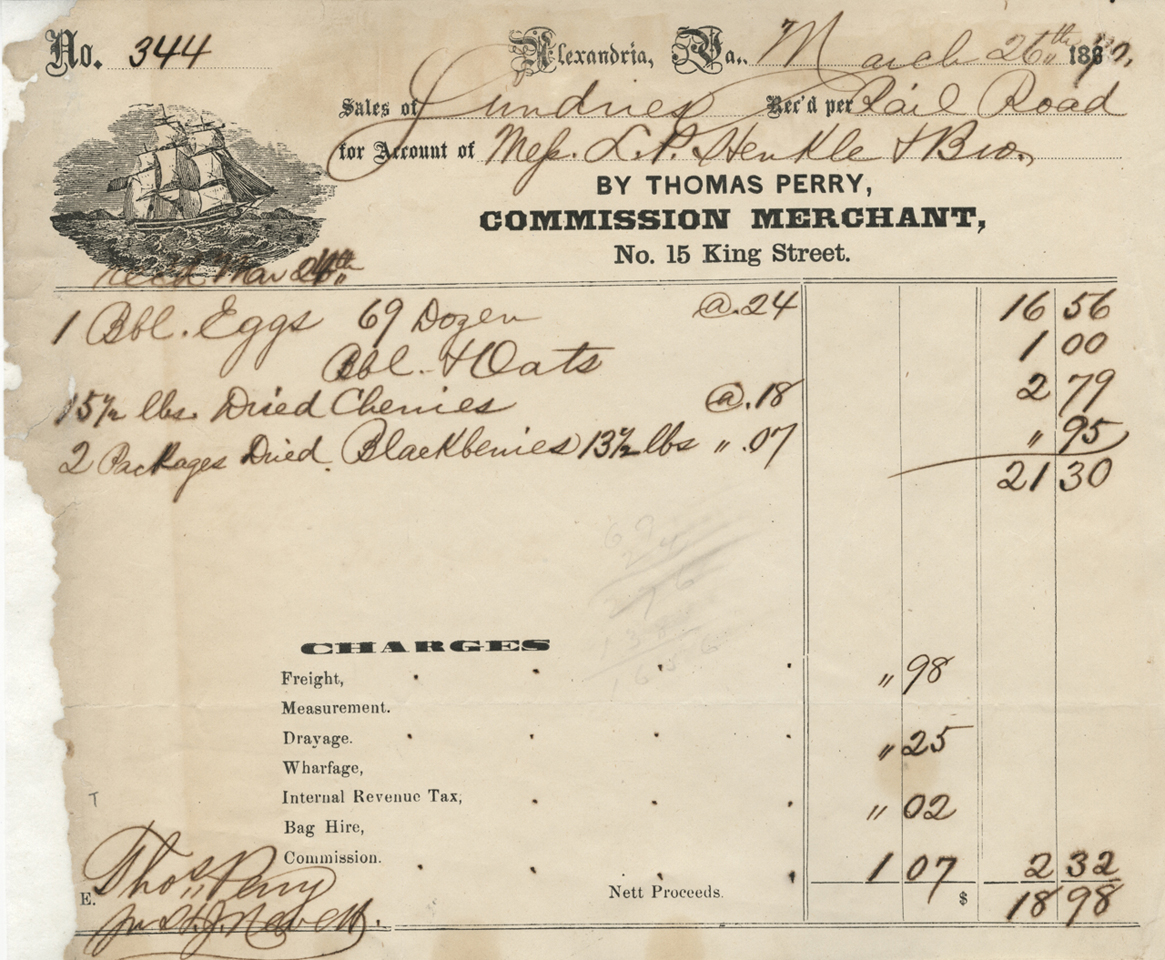 No. 344 Alexandria, Va., March 26th 1867.
Sales of Sundries Rec'd per Rail Road
for Account of Mess. L. P. Henkle & Bro.
BY THOMAS PERRY,
COMMISSION MERCHANT,
No. 15 King Street.
rec'd Mar 26th
1 Bbl. Eggs 69 Dozen @ .24 16 56
Bbl. & Oats 1 00
15½ lbs. Dried Cherries @ .18 2 79
2 Packages Dried Blackberries 13½ lbs " .07 " 95
21 30
69
24
276
138
1656
CHARGES
Freight, " 98
Measurement.
Drayage. " 25
Wharfage,
Internal Revenue Tax, " 02
Bag Hire,
Commission. 1 07 2 32
E. Nett Proceeds. $ 18 98
Thos. Perry